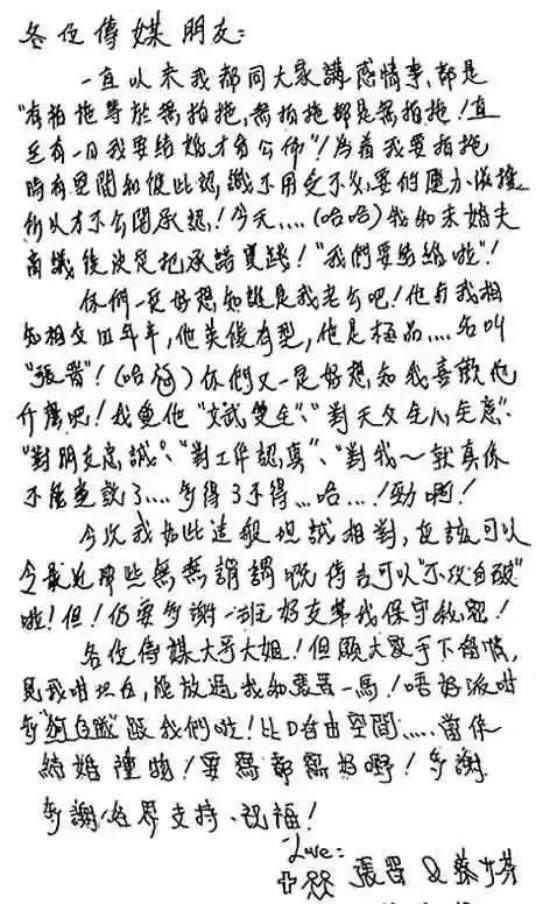 各位傳媒朋友：
一直以來我都同大家講感情事,都是
"有拍拖等於無拍拖,無拍拖都是無拍拖！直
至有一日我要結婚才會公佈"！為着我要拍拖
時有空間和彼此認識不用受不必要的壓力
所以才不公開承認！今天....(哈哈)我和未婚夫
商議後決定把承諾實踐！"我們要結婚啦"！
你們一定好想知誰是我老公吧！他與我相
知相交四年半,他英俊有型,他是極品....名叫
"張晋"！(哈哈)你們又一定好想知我喜歡他
什麼吧！我愛他"文武雙全"、"對天父全心全意"、
"對朋友忠誠"、"對工作認真"、"對我～就真係
不能盡數了....多得了不得...哈...！勁啊！
今次我如此這般坦誠相對,應該可以
令最近那些無無謂謂嘅傳言可以"不攻自破"
啦！但！仍要多謝一班好友幫我保守秘密！
各位傳媒大哥大姐！但願大家手下留情,
見我咁坦白,能放過我和張晋一馬！唔好派咁
多"狗白隊"跟我們啦！比D自由空間.....當係
結婚禮物！要寫都寫好嘢！多謝
多謝各界支持、祝福！
Love:
張晋 & 蔡少芬